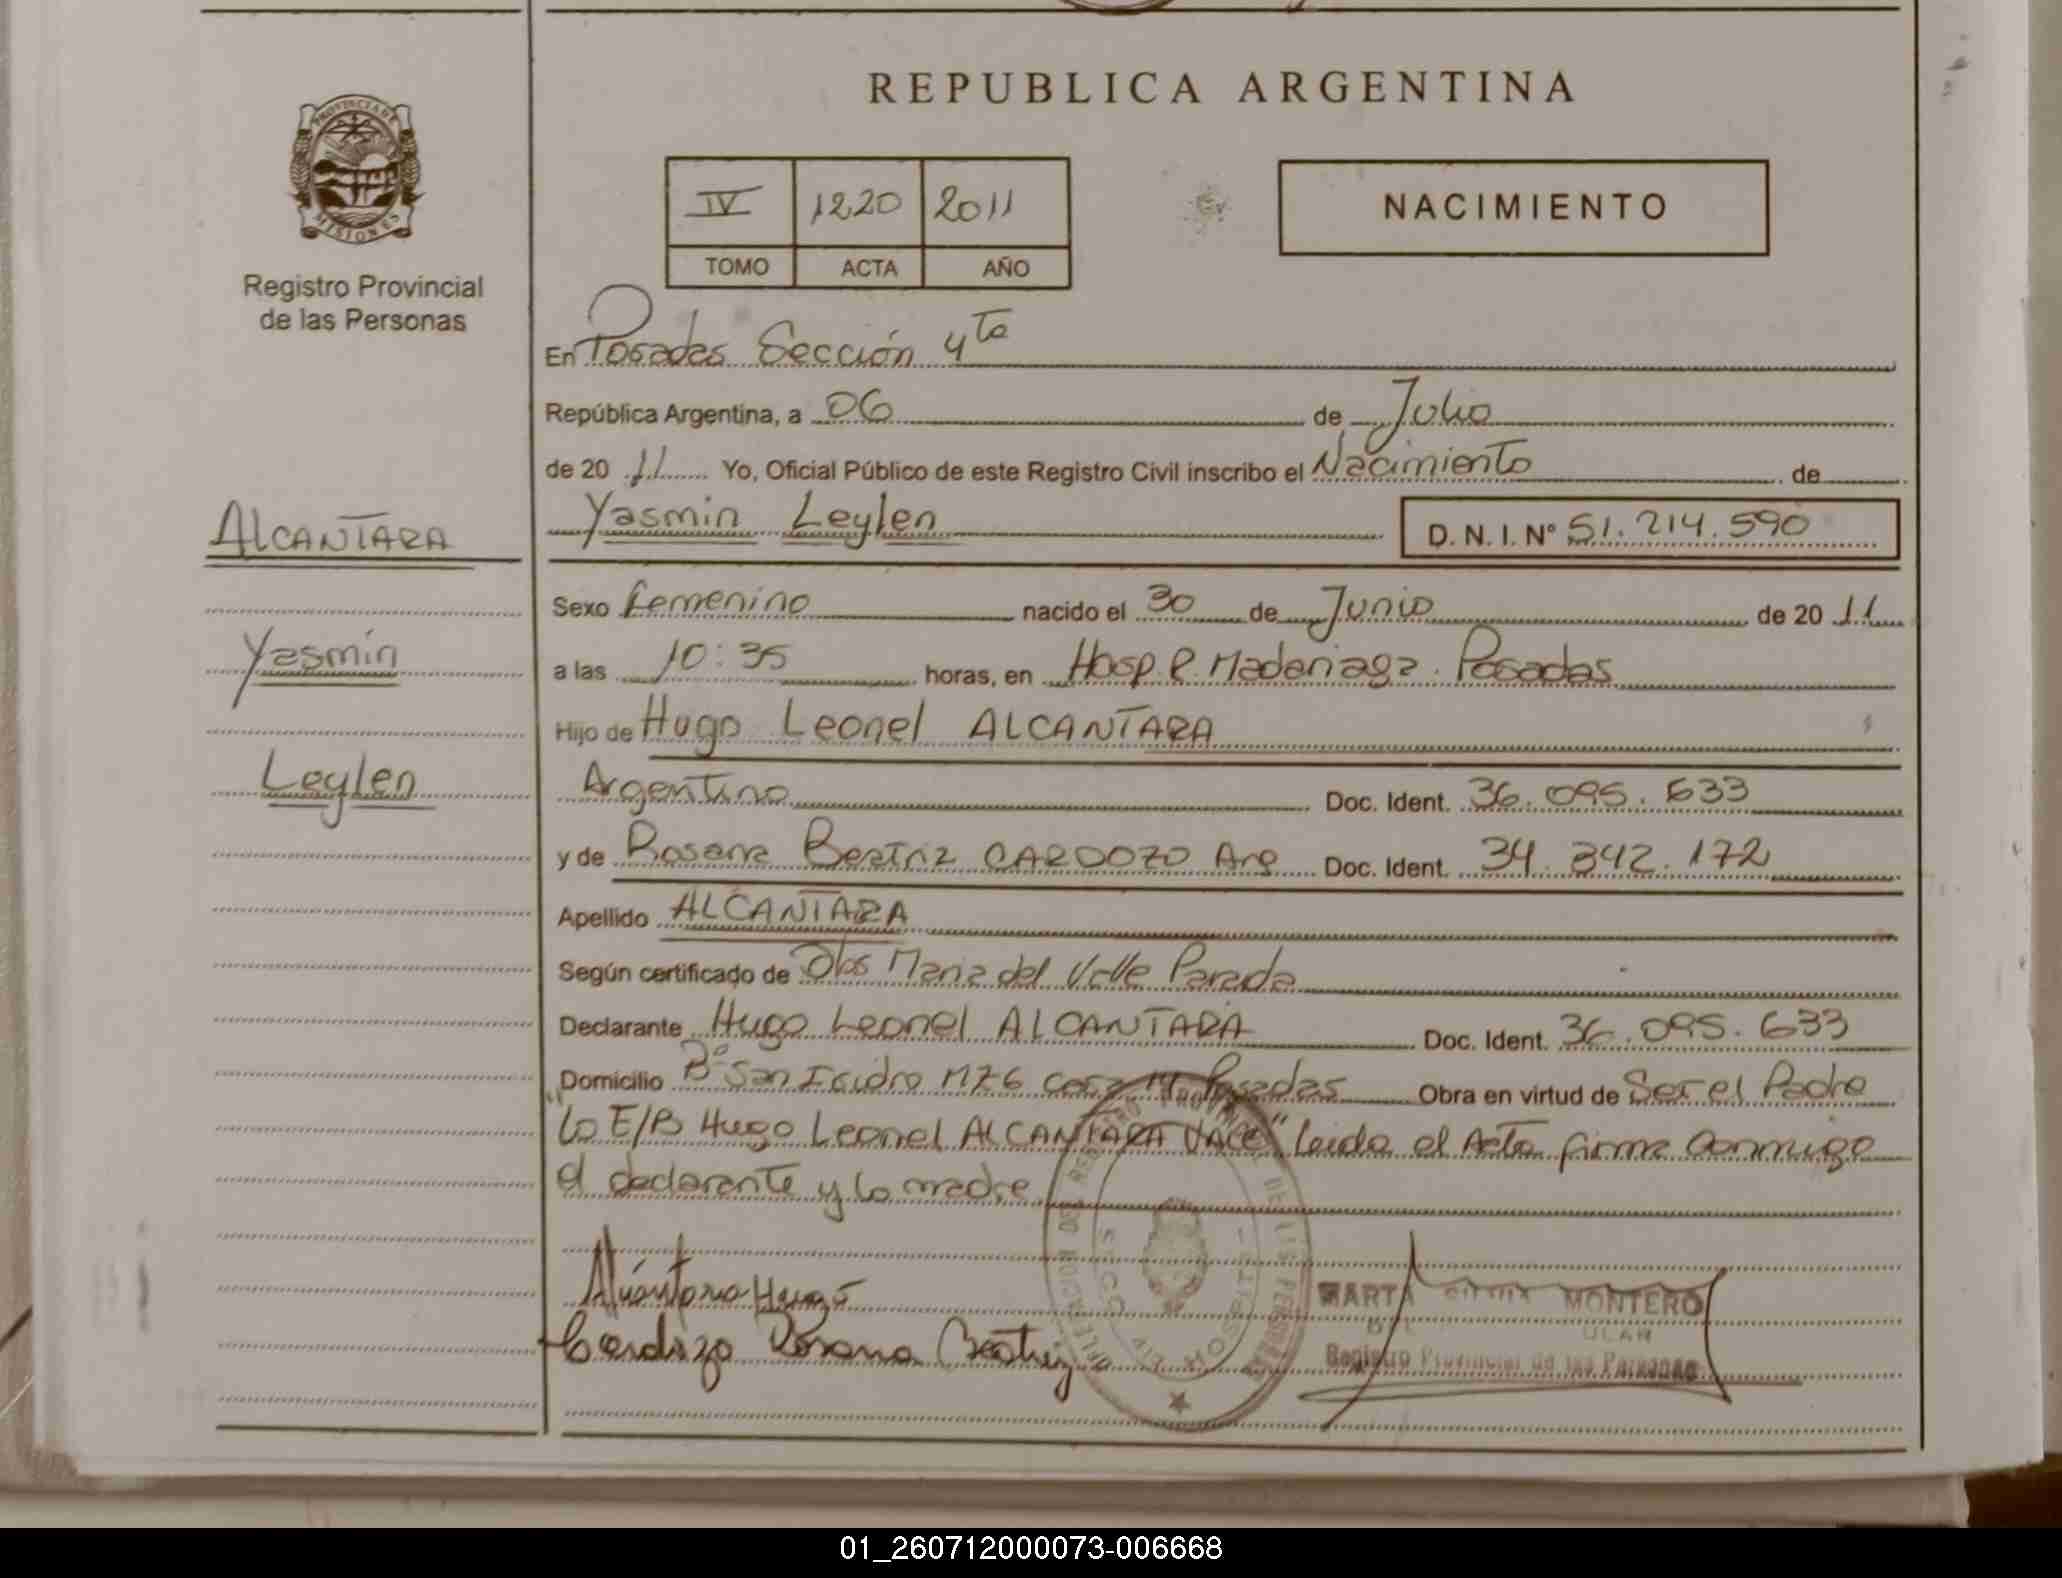 REPUBLICA ARGENTINA
PROVINCIA DE MISIONES
Registro Provincial
de las Personas
IV 1220 2011
TOMO ACTA AÑO
NACIMIENTO
En Posadas Sección 4ta
República Argentina, a 06 de Julio
de 20 11 Yo, Oficial Público de este Registro Civil inscribo el Nacimiento de
ALCANTARA
Yasmin Leylen D. N. I. Nº 51.214.590
Sexo Femenino nacido el 30 de Junio de 20 11
Yasmin
a las 10:35 horas, en Hosp. R. Madariaga. Posadas
Hijo de Hugo Leonel ALCANTARA
Leylen
Argentino Doc. Ident. 36.095.633
y de Rosana Beatriz CARDOZO Arg Doc. Ident. 34.342.172
Apellido ALCANTARA
Según certificado de Obs Maria del Valle Parada
Declarante Hugo Leonel ALCANTARA Doc. Ident. 36.095.633
Domicilio Bº San Isidro M76 Casa 14 Posadas Obra en virtud de Ser el Padre
"Lo E/B Hugo Leonel ALCANTARA VALE" Leida el Acta firma conmigo
el declarante y la madre
Alcantara Hugo
Cardozo Rosana Beatriz
DELEGACION DEL REGISTRO PROVINCIAL DE LAS PERSONAS
MARTA MONTERO
Registro Provincial de las Personas
01_260712000073-006668